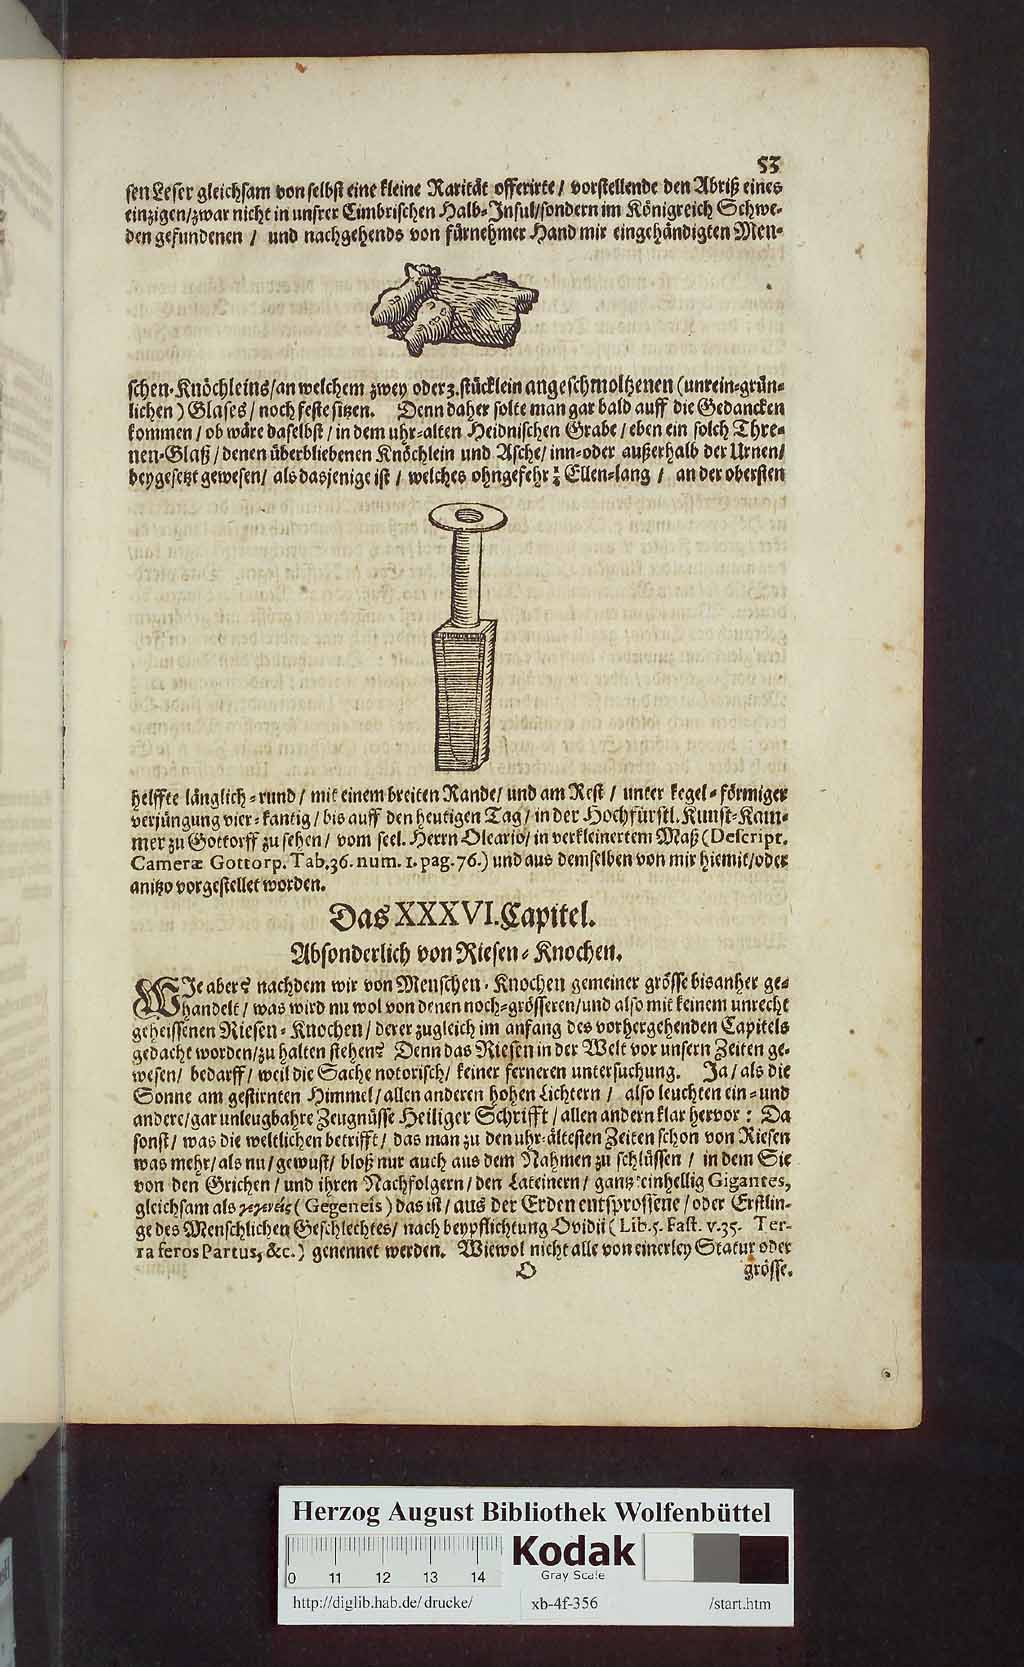 53
sen Leser gleichsam von selbst eine kleine Rarität offerirte / vorstellende den Abriß eines
einzigen/zwar nicht in unsrer Cimbrischen Halb-Insul/sondern im Königreich Schwe-
den gefundenen / und nachgehends von fürnehmer Hand mir eingehändigten Men-
schen-Knöchleins/an welchem zwey oder 3. stücklein angeschmoltzenen (unrein-grün-
lichen) Glases / noch feste sitzen. Denn daher solte man gar bald auff die Gedancken
kommen / ob wäre daselbst / in dem uhr-alten Heidnischen Grabe / eben ein solch Thre-
nen-Glaß / denen überbliebenen Knöchlein und Asche/ inn-oder außerhalb der Urnen/
beygesetzt gewesen / als dasjenige ist / welches ohngefehr ½ Ellen-lang / an der obersten
helffte länglich-rund / mit einem breiten Rande/ und am Rest / unter kegel-förmiger
verjüngung vier-kantig / bis auff den heutigen Tag / in der Hochfürstl. Kunst-Kam-
mer zu Gottorff zu sehen / vom seel. Herrn Oleario/ in verkleinertem Maß (Descript.
Cameræ Gottorp. Tab. 36. num. 1. pag. 76.) und aus demselben von mir hiemit/oder
anitzo vorgestellet worden.
Das XXXVI. Capitel.
Absonderlich von Riesen-Knochen.
WIe aber? nachdem wir von Menschen-Knochen gemeiner grösse bisanher ge-
handelt / was wird nu wol von denen noch-grösseren/und also mit keinem unrecht
geheissenen Riesen-Knochen / derer zugleich im anfang des vorhergehenden Capitels
gedacht worden/zu halten stehen? Denn das Riesen in der Welt vor unsern Zeiten ge-
wesen/ bedarff / weil die Sache notorisch / keiner ferneren untersuchung. Ja / als die
Sonne am gestirnten Himmel / allen anderen hohen Lichtern / also leuchten ein-und
andere / gar unleugbahre Zeugnüsse Heiliger Schrifft / allen andern klar hervor: Da
sonst / was die weltlichen betrifft / das man zu den uhr-ältesten Zeiten schon von Riesen
was mehr / als nu / gewust / bloß nur auch aus dem Nahmen zu schlüssen / in dem Sie
von den Grichen / und ihren Nachfolgern / den Lateinern / gantz einhellig Gigantes,
gleichsam als γεγενεῖς (Gegeneis) das ist / aus der Erden entsprossene / oder Erstlin-
ge des Menschlichen Geschlechtes / nach beypflichtung Ovidii (Lib. 5. Fast. v. 35. Ter-
ra feros Partus, &c.) genennet werden. Wiewol nicht alle von einerley Statur oder
O grösse.
Herzog August Bibliothek Wolfenbüttel
0 11 12 13 14
Kodak
Gray Scale
http://diglib.hab.de/drucke/ xb-4f-356 /start.htm